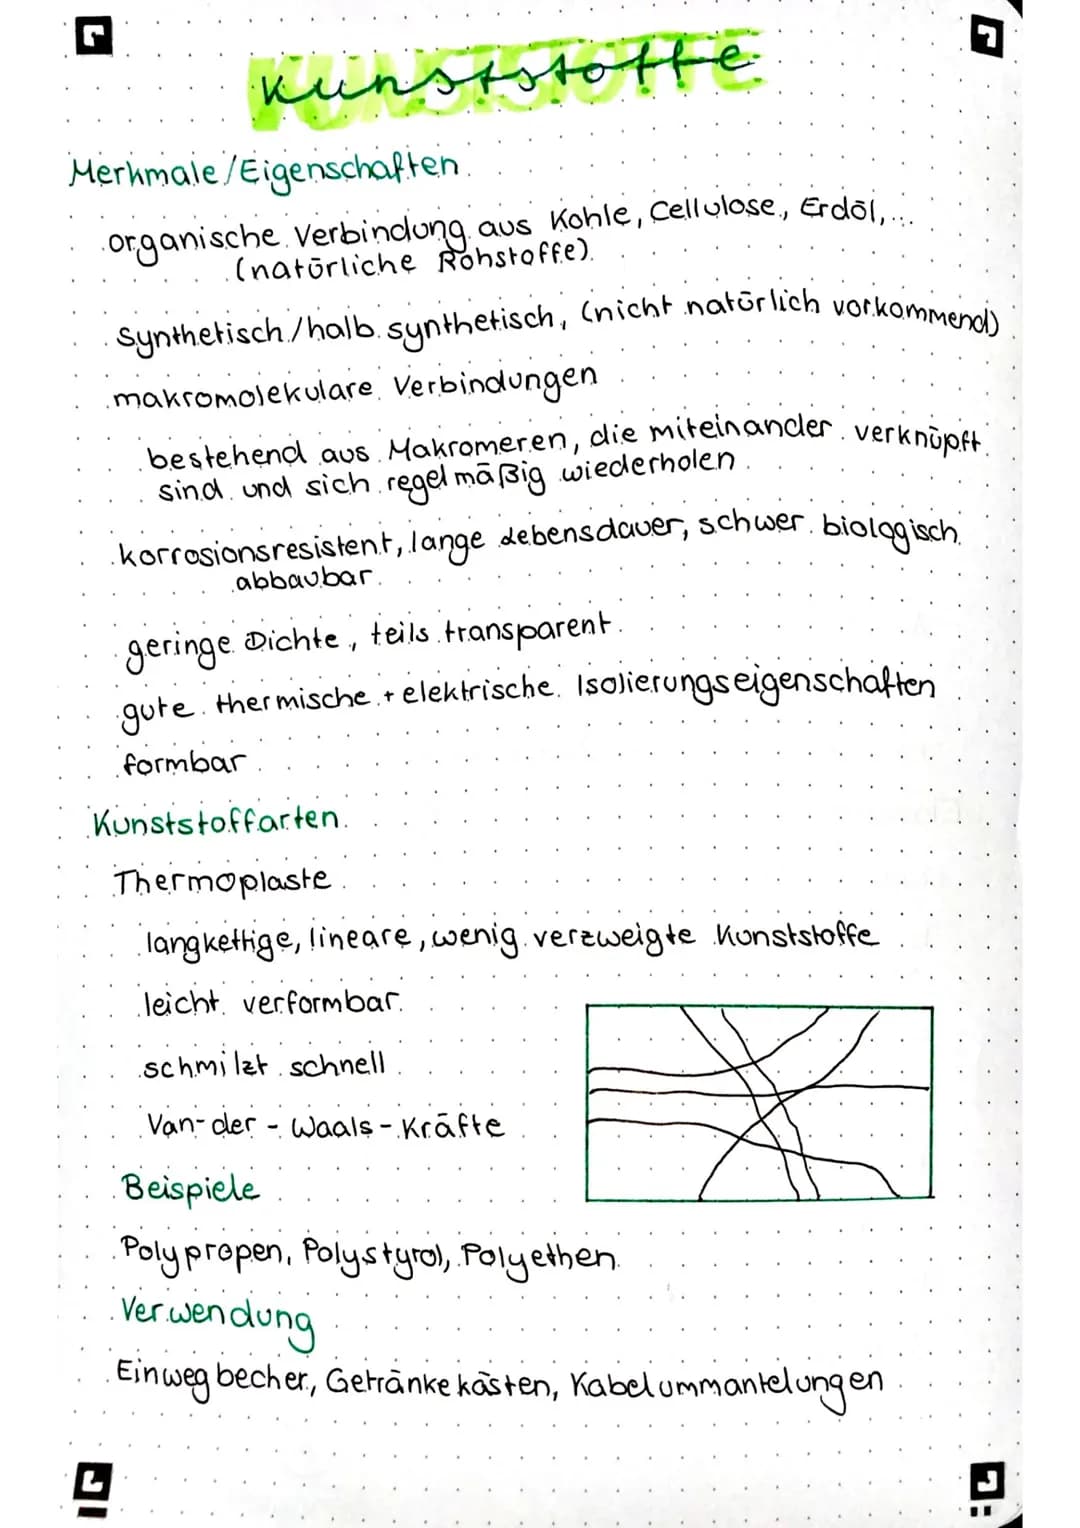 Kunststoffe
Merkmale/Eigenschaften
organische Verbindung aus Kohle, Cellulose, Erdöl,...
(natürliche Rohstoffe)
synthetisch/halb synthetisch, (nicht natürlich vorkommend)
makromolekulare Verbindungen
bestehend aus Makromeren, die miteinander verknüpft
sind und sich regelmäßig wiederholen
korrosionsresistent, lange Lebensdauer, schwer biologisch
abbaubar
geringe Dichte, teils transparent
gute thermische + elektrische Isolierungseigenschaften
formbar
Kunststoffarten
Thermoplaste
langkettige, lineare, wenig verzweigte Kunststoffe
leicht verformbar
schmilzt schnell
Van-der-Waals-Kräfte
Beispiele
Polypropen, Polystyrol, Polyethen
Verwendung
Einwegbecher, Getränkekästen, Kabelummantelungen